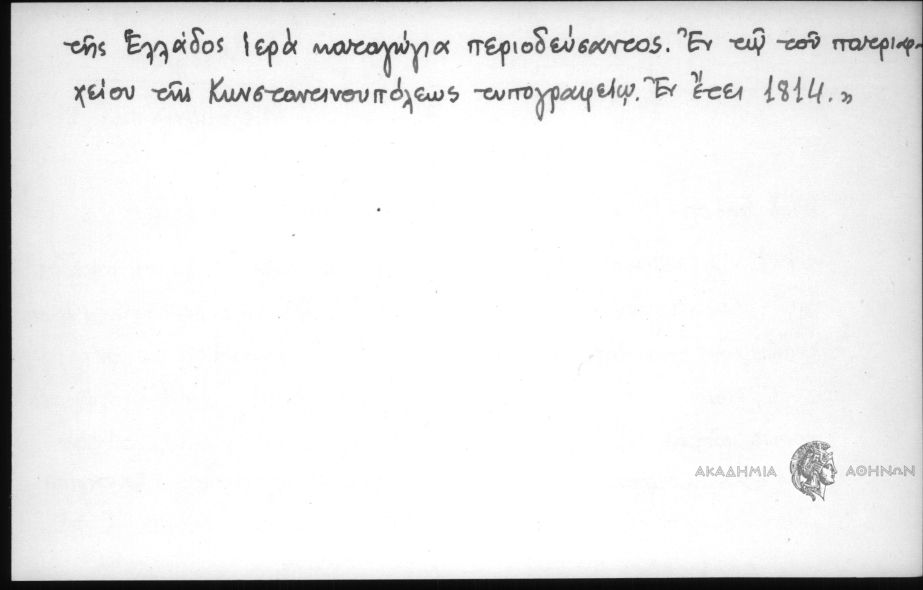 τῆς Ἑλλάδος ἱερὰ καταγώγια περιοδεύσαντος. Ἐν τῷ τοῦ πατριαρ-
χείου τῆς Κωνσταντινουπόλεως τυπογραφείῳ. Ἐν ἔτει 1814.»
ΑΚΑΔΗΜΙΑ ΑΘΗΝΩΝ